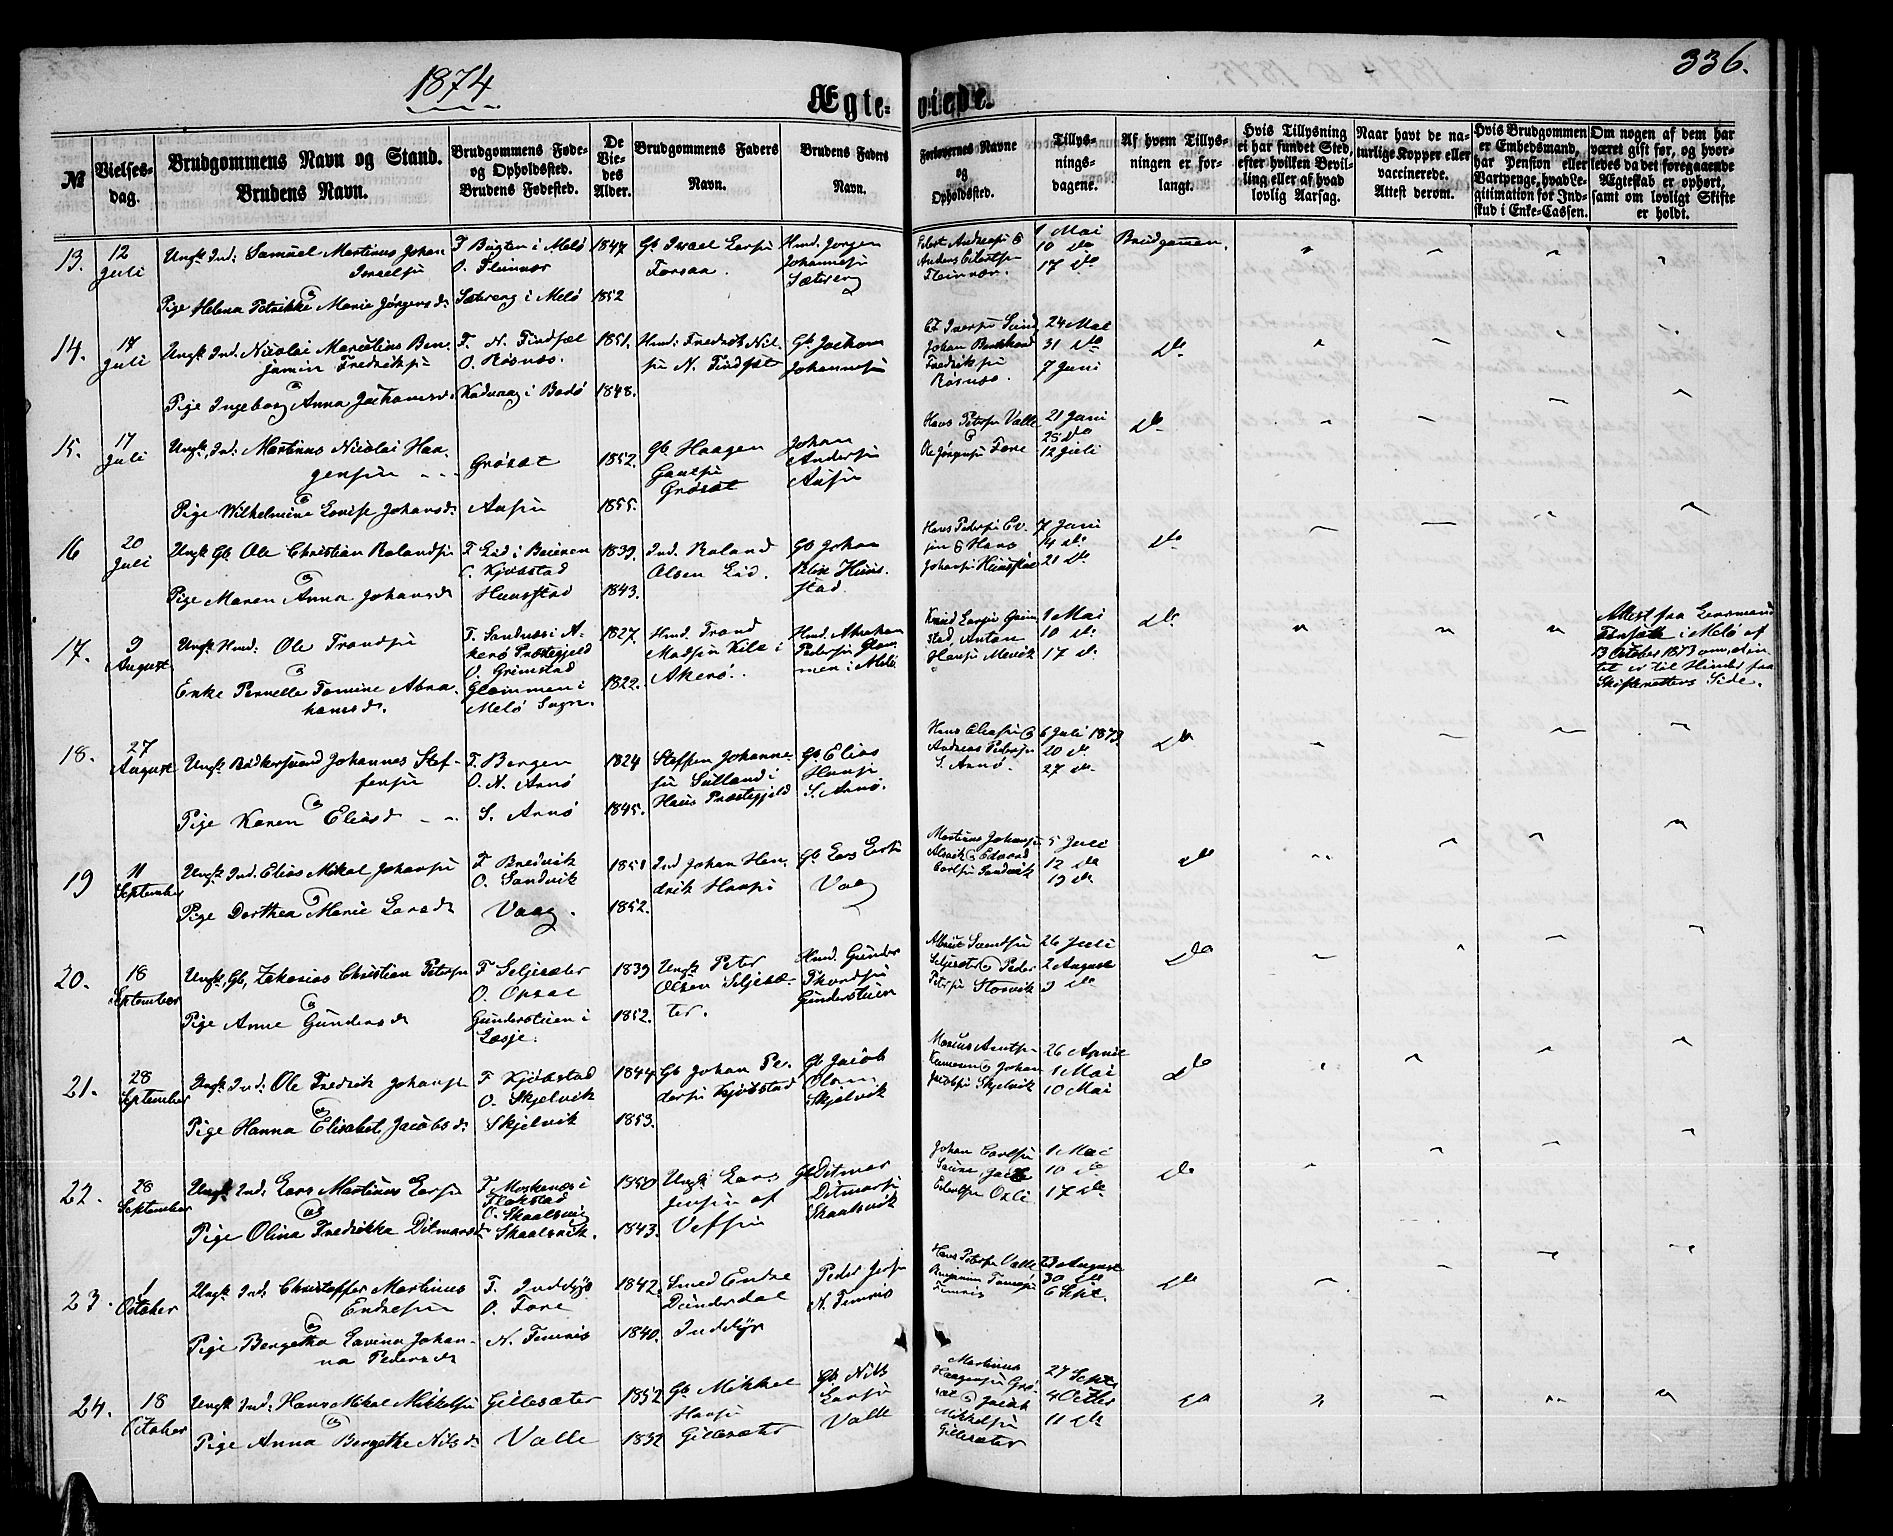 1874
336.
Ægte-viede.
№
Vielses-dag.
Brudgommens Navn og Stand.
Brudens Navn.
Brudgommens Føde-
og Opholdssted.
Brudens Fødested.
De Vie-des Alder.
Brudgommens Faders Navn.
Brudens Faders Navn.
Forlovernes Navne og Opholdssted.
Tillys-nings-dagene.
Af hvem Tillys-ningen er for-langt.
Hvis Tillysning
ei har fundet Sted,
efter hvilken Bevil-
ling eller af hvad
lovlig Aarsag.
Naar havt de na-
turlige Kopper eller
vaccinerede.
Attest derom.
Hvis Brudgommen
er Embedsmand,
har Pension eller
Vartpenge, hvad Le-
gitimation for Ind-
skud i Enke-Cassen.
Om nogen af dem har
været gift før, og hvor-
ledes da det foregaaende
Ægteskab er ophørt,
samt om lovligt Skifte
er holdt.
13.
12 Juli
Ungk. Ind: Samuel Martinus Johan
Israelsen
Pige Helena Petrikke Marie Jørgensd.
F. Bugten i Melø
O. Fleinvær
Sætereng i Melø
1847
1852
Gb Israel Larsen
Forsaa.
Hmd. Jørgen
Johannesen
Sætereng
Fleinvær.
1 Mai
10 do
17 do
Brudgommen.
14.
17 Juli
Ungk. Ind. Nicolai Marcelius Ben-
jamin Fredriksen
Pige Ingeborg Anna Jochumsd.
F. N. Findset
O. Røsnæs.
i Bodø
1851.
1848.
Hmd. Fredrik Nil-
sen N. Findset
Gb. Jochum
Johannesen
Fredriksen
Røsnæs.
24 Mai
31 do
7 Juni
do
15.
17 Juli
Ungk. Ind. Martinus Nicolai Haa-
gensen
Pige Wilhelmine Lovise Johansd.
Grøsæt
1852.
1855.
Gb Haagen
Grøsæt
Johan
Andersen
Hans Petersen Valle
&
Ole Jørgensen Fore
21 Juni
28 do
12 Juli
do
16
20 Juli
Ungk. Gb. Ole Christian Rolandsen
&
Pige Maren Anna Johansd.
F. Eid i Beieren
O. Kjøbstad
Hunstad
1839.
1843.
Ind. Roland
Olsen Eid.
Gb Johan
Hun-
stad.
Hans Pedersen Ev-
jen & Hans
Johansen Hunstad
7 Juni
14 do
21 do
do
17.
9 August
Ungk. Hmd: Ole Trondsen
&
Enke Pernelle Tomine Abra-
hamsd.
F. Sandnæs i A-
kerø Præstegjeld
O. Grimstad
Glommen i
Melø Sogn.
1827.
1822.
Hmd. Trond
Madsen Kile i
Akerø.
Hmd. Abraham
Pedersen Glom-
men i Melø
Knud Larsen Grim-
stad Anton
Hansen Mevik
1 Mai
10 do
17 do
do
Attest fra Lensmand
i Melø af
13 October 1873 om, at in-
tet er til Hinder fra
Skifterettens Side.
18.
27 August
Ungk. Bødkersvend Johannes Stef-
fensen
&
Pige Karen Eliasd.
F. Bergen
O. N. Arnø
S. Arnø
1824
1845.
Steffen Johanne-
sen i
Haus Præstegjeld
Gb Elias
Hansen
S. Arnø.
Hans Eliasen &
Andreas Pedersen
S. Arnø.
6 Juli 1873
20 do
27 do
do
19
11 September
Ungk. Ind. Elias Mikal Johansen
&
Pige Dorthea Marie Larsd.
F. Bredvik
O. Sandvik
Vaag.
1851
1852.
Ind Johan Hen-
drik Hansen
Gb Lars
Vaag
Martinus Johansen
Alsvik & Edvard
Carlsen Sandvik
5 Juli
12 do
19 do
do
20.
18 September
Ungk. Gb, Zakarias Christian Petersen
&
Pige Anne Gundersd.
F. Seljesæter
O. Opsal
Gunderstuen i
Læsje.
1839
1852.
Ungk. Peter
Olsen Seljesæ-
ter.
Hmd. Gunder
Thordsen
Gunderstuen
Seljesæter & Peder
Petersen Storvik
26 Juli
2 August
9 do
do
21.
28 September
Ungk. Ind: Ole Fredrik Johansen
&
Pige Hanna Elisabet Jacobsd.
F Kjøbstad
O. Skjelvik
Skjelvik
1844.
1853.
Gb Johan Pe-
dersen Kjøbstad
Gb Jacob
Olsen
Skjelvik
Marius Arntsen
& Johan
Jacobsen Skjelvik
26 April
1 Mai
10 Mai
do
22.
28 September
Ungk. Ind: Lars Martinus Larsen
&
Pige Olina Fredrikke Ditmarsd.
F. Moskenæs i
Flakstad
O. Skaalsvig
Skaalsvik.
1850
1843.
Ungk. Lars
Jensen af
Vefsen
Gb Ditmar
Ditmarsen
Skaalsvik
Johan Carlsen
1 Mai
10 do
17 do
do
23.
1 October
Ungk. Ind: Christoffer Martinus
Endresen
&
Pige Bergetha Lavina Johan-
na Pedersd.
F. Inddyr
O. Fore
N. Femris
1842.
1840.
Smed Endre
Dunderdal
Inddyr
Peder Jensen
N. Femris
Hans Petersen Valle
Benjamin Tomasen
Femris
23 August
30 do
6 Sept.
do
24.
18 October
Ungk. Ind: Hans Mikal Mikkelsen
&
Pige Anna Bergethe Nilsd.
Gillesæter
Valle
1852
1832
Gb Mikkel
Hansen
Gillesæter
Gb. Nils
Larsen
Valle
Martinus
Haagensen Grø-
sæt & Jacob
Mikkelsen
Gillesæter
27 Septr
4 Octbr
11 do
do